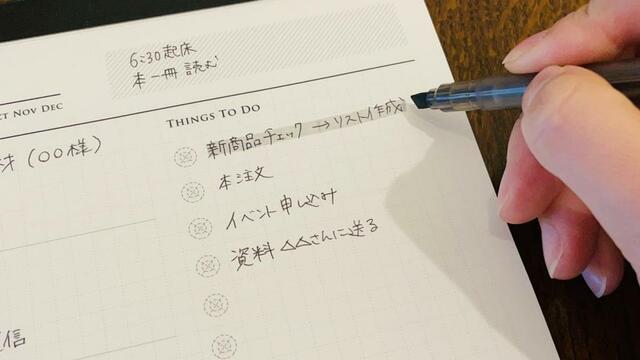 6:30起床
本一冊 読む
CT NOV DEC
THINGS TO DO
新商品チェック→リスト作成
本注文
イベント申し込み
資料 △△さんに送る
(〇〇様)
信